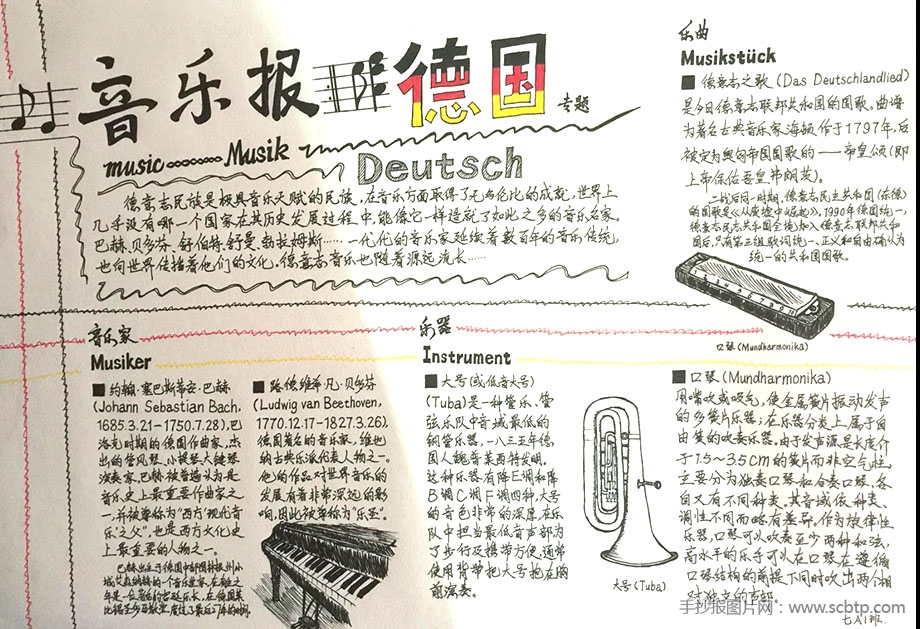 音乐报
德国
专题
music·········Musik
Deutsch
德意志民族是极具音乐天赋的民族,在音乐方面取得了无与伦比的成就,世界上
几乎没有哪一个国家在其历史发展过程中,能像它一样造就了如此之多的音乐名家。
巴赫、贝多芬、舒伯特、舒曼、勃拉姆斯……一代代的音乐家延续着数百年的音乐传统,
也向世界传播着他们的文化。德意志音乐也随着源远流长……
乐曲
Musikstück
■ 德意志之歌 (Das Deutschlandlied)
是今日德意志联邦共和国的国歌。曲谱
为著名古典音乐家海顿作于1797年,后
被定为奥匈帝国国歌的——帝皇颂(即
上帝保佑吾皇弗朗茨)。
二战后同一时期,德意志民主共和国(东德)
的国歌是《从废墟中崛起》。1990年德国统一,
德意志民主共和国全境加入德意志联邦共和
国后,只有第三组歌词统一、正义和自由确认为
统一的共和国国歌。
口琴(Mundharmonika)
音乐家
Musiker
■ 约翰·塞巴斯蒂安·巴赫
(Johann Sebastian Bach,
1685.3.21-1750.7.28),巴
洛克时期的德国作曲家,杰
出的管风琴、小提琴、大键琴
演奏家。巴赫被普遍认为是
音乐史上最重要作曲家之
一,并被尊称为“西方‘现代音
乐’之父”,也是西方文化史
上最重要的人物之一。
巴赫出生于德国中部图林根州小
城艾森纳赫的一个音乐世家,
■ 路德维希·凡·贝多芬
(Ludwig van Beethoven,
1770.12.17-1827.3.26),
德国著名的音乐家,维也
纳古典乐派代表人物之一。
他的作品对世界音乐的
发展有着非常深远的影
响,因此被尊称为“乐圣”。
乐器
Instrument
■ 大号(或低音大号)
(Tuba)是一种管乐、管
弦乐队中音域最低的
铜管乐器,一八三五年德
国人魏普莱西特发明。
这种乐器有降E调和降
B调C调F调四种,大号
的音色非常的深厚,在乐
队中担当最低音声部为
了步行及携带方便,通常
使用背带把大号抱在胸
前演奏。
大号(Tuba)
■ 口琴(Mundharmonika)
用嘴吹或吸气,使金属簧片振动发声
的多簧片乐器;在乐器分类上属于自
由簧的吹奏乐器。由于发声源是长度介
于1.5~3.5cm的簧片而非空气柱,
主要分为独奏口琴和合奏口琴,各
自又有不同种类。其音域依种类、
调性不同而略有差异。作为旋律性
乐器,口琴可以吹奏至少两种和弦,
高水平的乐手可以在口琴在遵循
口琴结构的前提下同时吹出两个相
对独立的声部。
手抄报图片网:www.scbtp.com